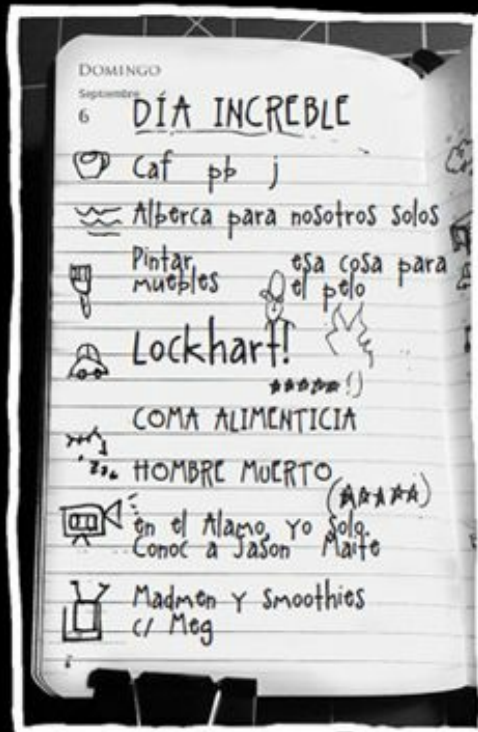 DOMINGO
Septiembre
6 DÍA INCREBLE
Caf pb j
Alberca para nosotros solos
Pintar muebles
esa cosa para el pelo
Lockhart!
★★★★★!)
COMA ALIMENTICIA
zzz HOMBRE MUERTO
(★★★★★)
en el Alamo, yo solo.
Conoc a Jason Maite
Madmen y smoothies
c/ Meg